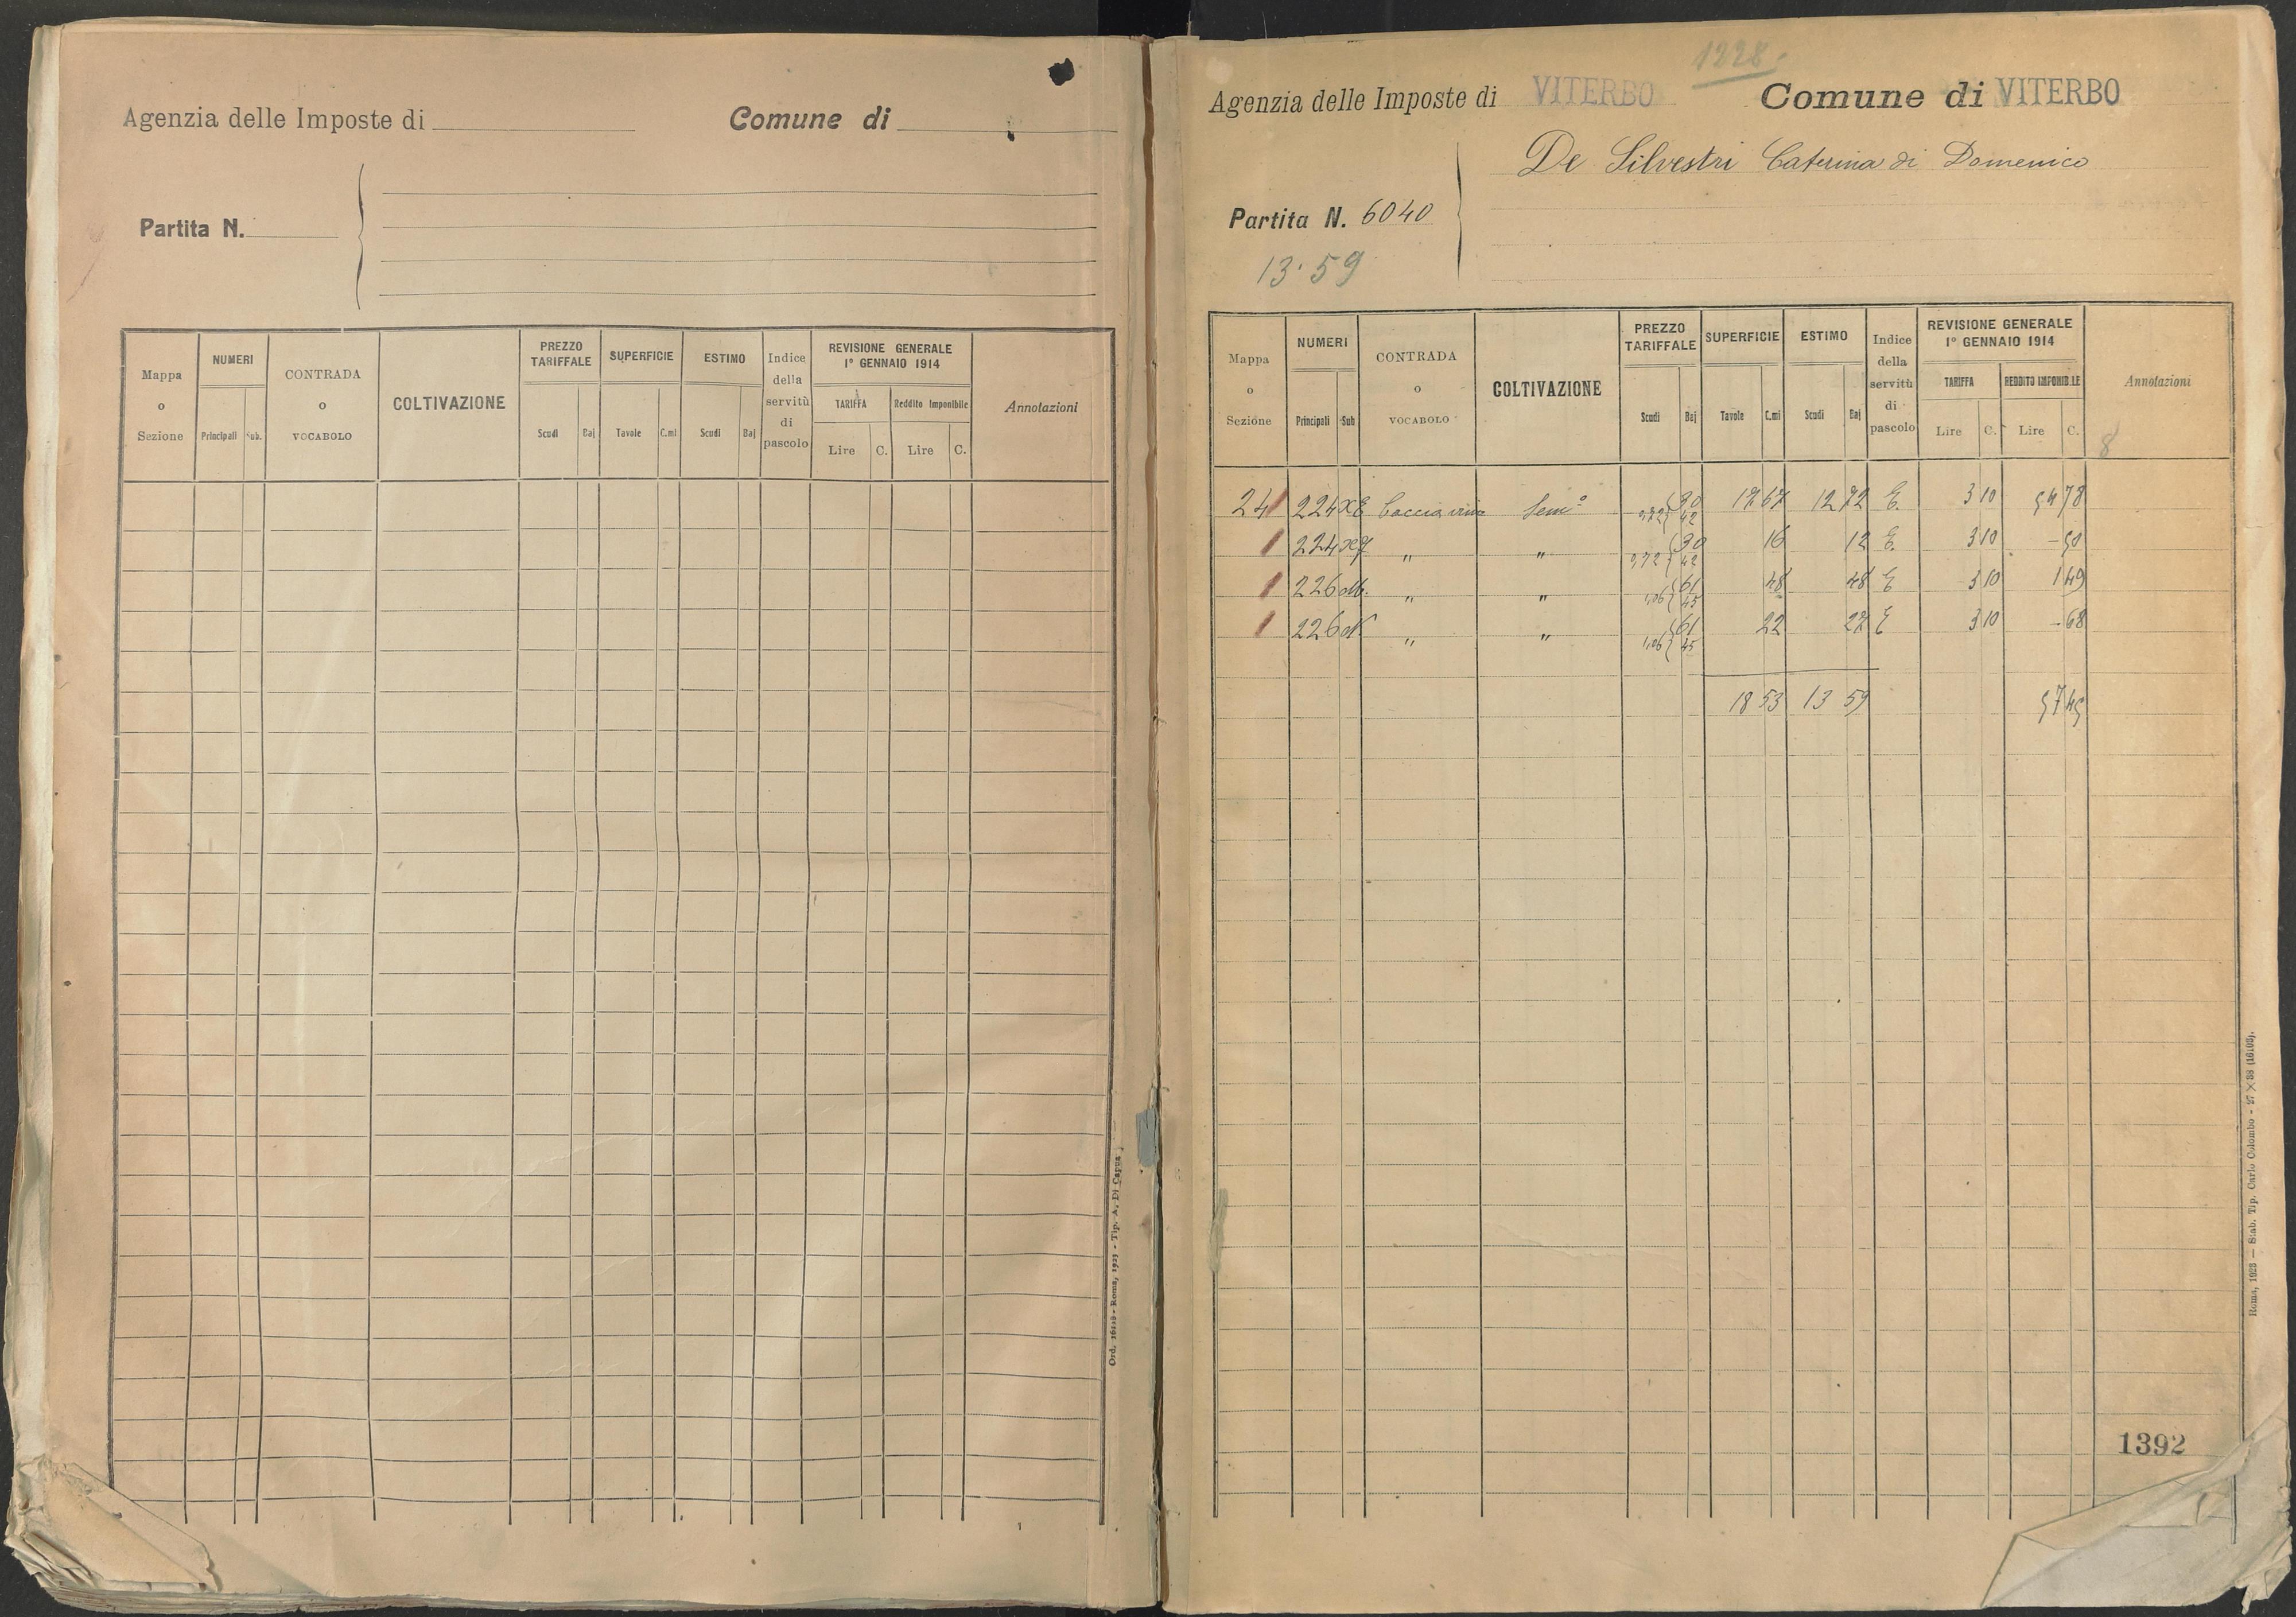 Agenzia delle Imposte di
Comune di
Partita N.
Mappa o Sezione
NUMERI
Principali
Sub.
CONTRADA o VOCABOLO
COLTIVAZIONE
PREZZO TARIFFALE
Scudi
Baj
SUPERFICIE
Tavole
C.mi
ESTIMO
Scudi
Baj
Indice della servitù di pascolo
REVISIONE GENERALE
1° GENNAIO 1914
TARIFFA
Lire
C.
Reddito Imponibile
Lire
C.
Annotazioni
Tip. A. Di Capua
1228.
Agenzia delle Imposte di VITERBO
Comune di VITERBO
De Silvestri Caterina di Domenico
Partita N. 6040
13.59
Mappa o Sezione
NUMERI
Principali
Sub
CONTRADA o VOCABOLO
COLTIVAZIONE
PREZZO TARIFFALE
Scudi
Baj
SUPERFICIE
Tavole
C.mi
ESTIMO
Scudi
Baj
Indice della servitù di pascolo
REVISIONE GENERALE
1° GENNAIO 1914
TARIFFA
Lire
C.
REDDITO IMPONIBILE
Lire
C.
Annotazioni
8
24 224 Sem° 30 42 17 67 12 72 E. 3 10 54 78
224 " " 30 42 16 12 E. 3 10 - 50
226 " " 1,06 61 45 48 48 E 3 10 1 49
226 " " 1,06 61 45 22 27 E 3 10 - 68
18 53 13 59 57 45
1392
Roma, 1923 — Stab. Tip. Carlo Colombo - 27 × 38 (16108).